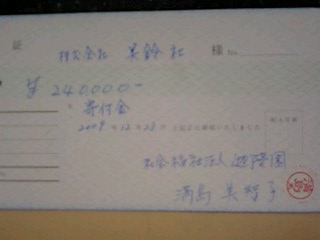 証
株式会社 美鈴社 様 No.
¥240,000-
寄付金
2009.12.28 上記正に領収いたしました
収入印紙
社会福祉法人
満島 美智子